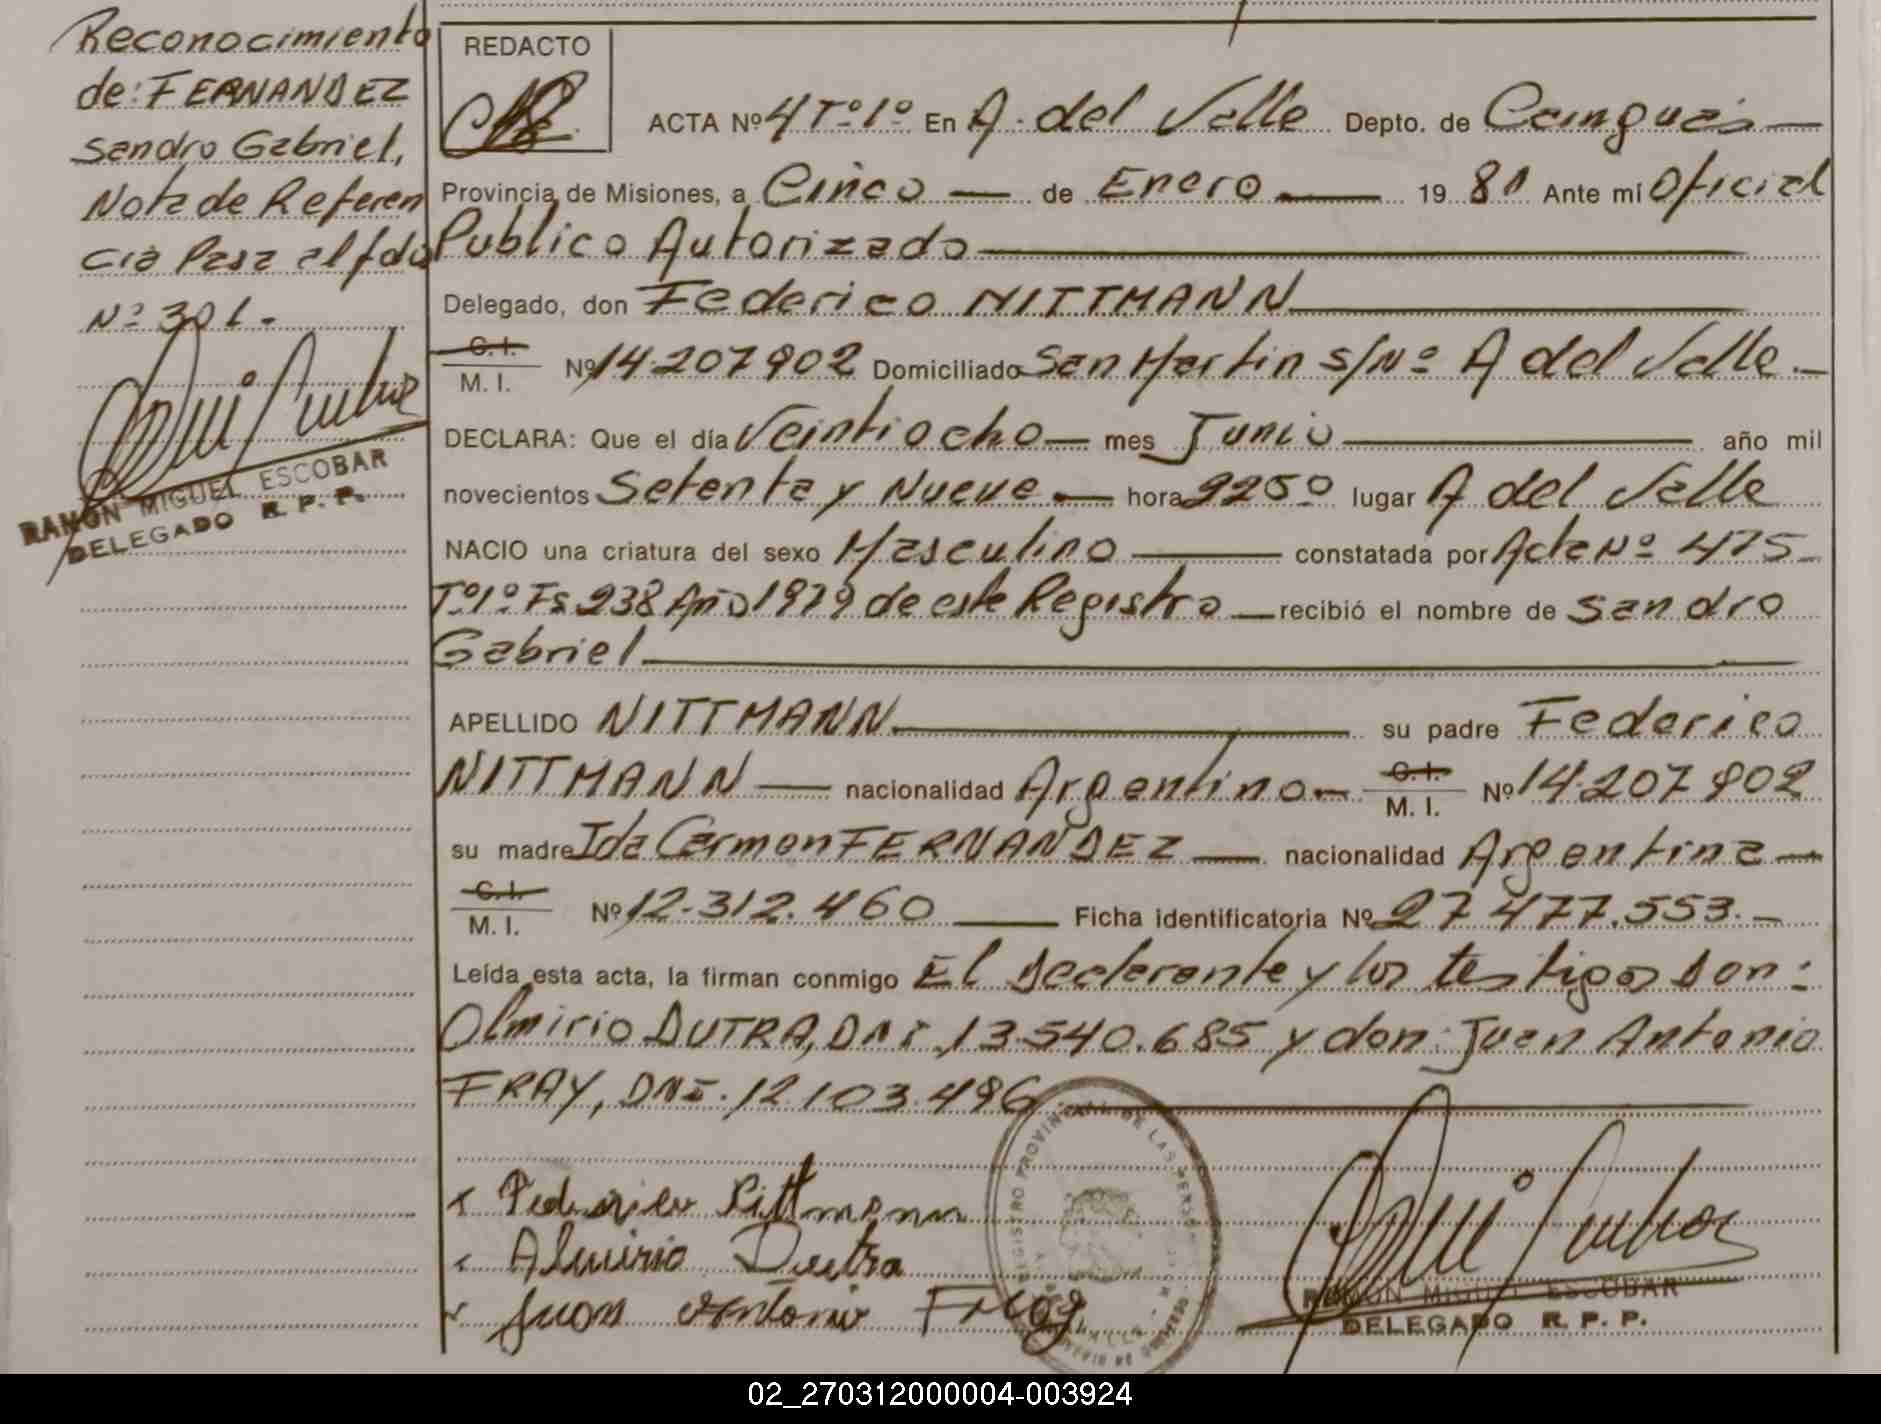 Reconocimiento
de: FERNANDEZ
Sandro Gabriel,
Nota de Referen
cia Pasa al folio
Nº 301.-
RAMON MIGUEL ESCOBAR
DELEGADO R. P. P.
REDACTO
ACTA Nº 4 Tº1º En A. del Valle Depto. de Cainguás
Provincia de Misiones, a Cinco — de Enero — 19 81 Ante mí Oficial
Publico Autorizado
Delegado, don Federico NITTMANN
C. I.
M. I. Nº 14.207.902 Domiciliado San Martin s/Nº A del Valle.-
DECLARA: Que el día Veintiocho — mes Junio — año mil
novecientos Setenta y Nueve — hora 2250 lugar A del Valle
NACIO una criatura del sexo Masculino — constatada por Acta Nº 475-
Tº1º Fs 238 Año 1979 de este Registro — recibió el nombre de Sandro
Gabriel
APELLIDO NITTMANN — su padre Federico
NITTMANN — nacionalidad Argentino — C. I. M. I. Nº 14.207.902
su madre Ida Carmen FERNANDEZ — nacionalidad Argentina —
C. I.
M. I. Nº 12.312.460 — Ficha identificatoria Nº 27.477.553.-
Leída esta acta, la firman conmigo El Declarante y los testigos Don:
Olmirio DUTRA, DNI. 13.540.685 y don: Juan Antonio
FRAY, DNI. 12.103.496
x Federico Nittmann
Almirio Dutra
Juan Antonio Fray
REGISTRO PROVINCIAL DE LAS PERSONAS
RAMON MIGUEL ESCOBAR
DELEGADO R. P. P.
02_270312000004-003924